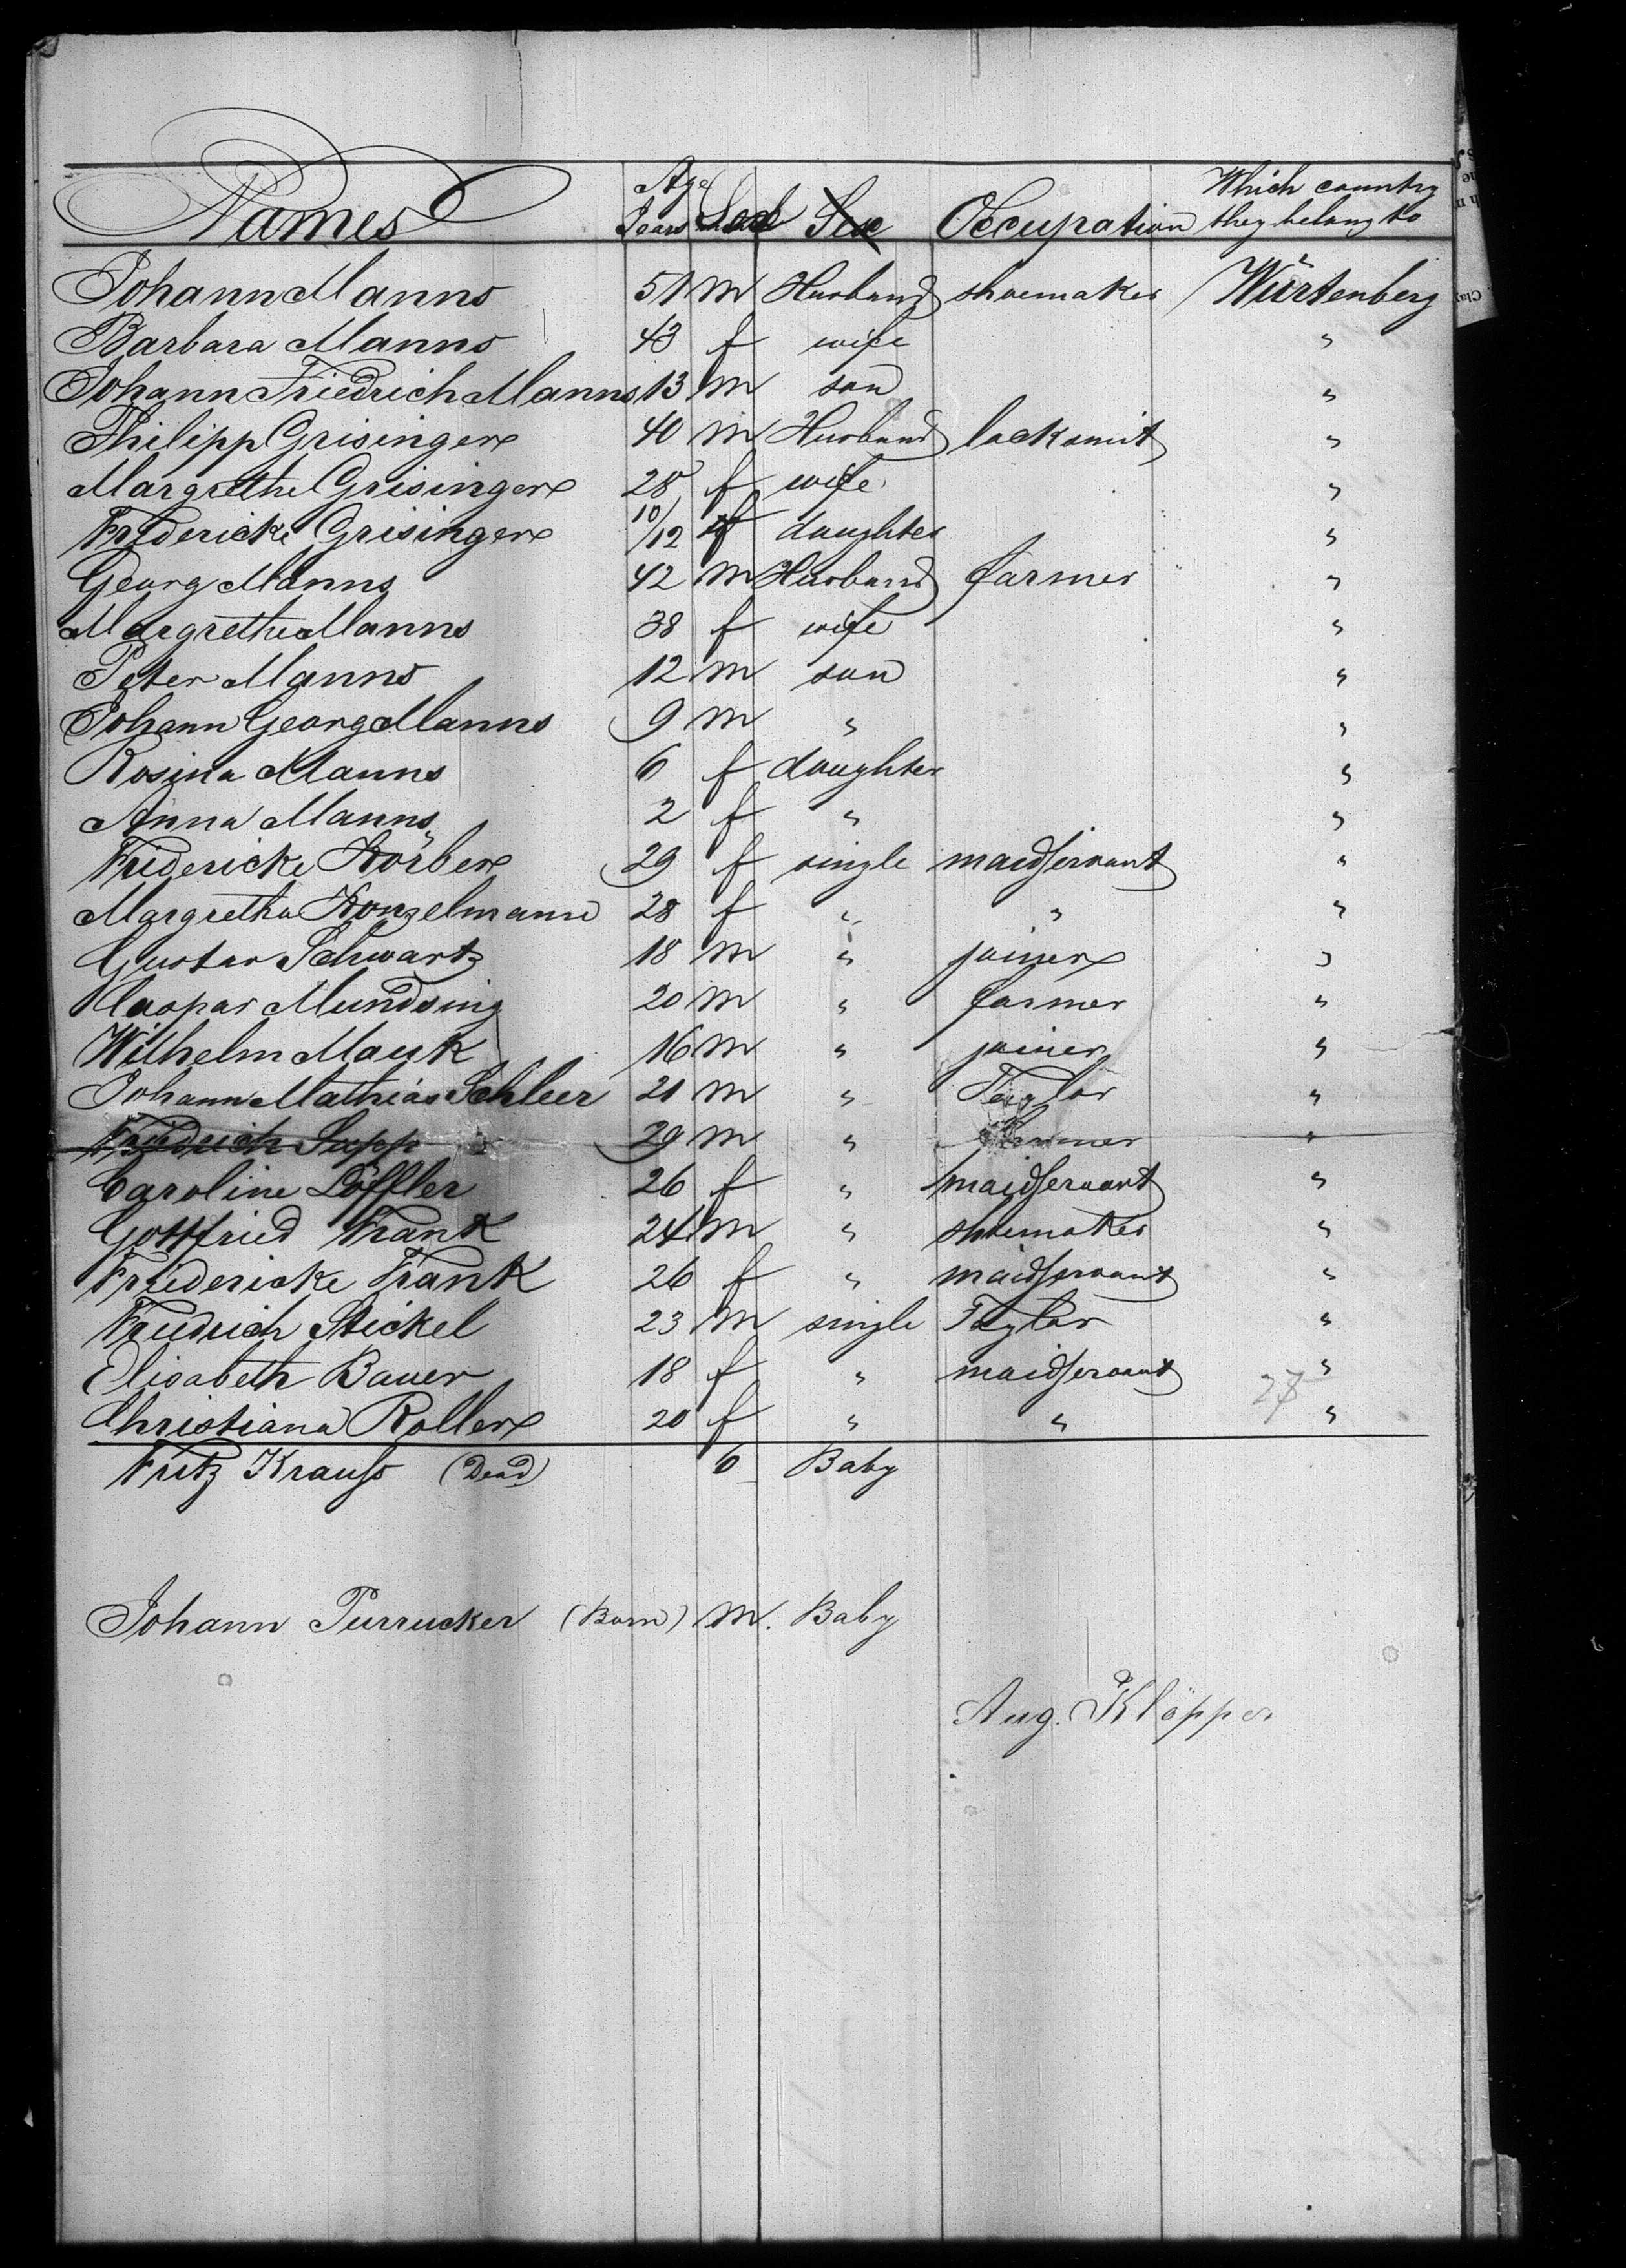 Names Age Years Sex Sex Occupation Which country they belong to
Johann Manns 51 m Husband shoemaker Würtenberg
Barbara Manns 43 f wife "
Johann Friedrich Manns 13 m son "
Philipp Grisinger 40 m Husband locksmit "
Margrethe Grisinger 28 f wife "
Fridericke Grisinger 10/12 f daughter "
Georg Manns 42 m Husband farmer "
Margrethe Manns 38 f wife "
Peter Manns 12 m son "
Johann Georg Manns 9 m " "
Rosina Manns 6 f daughter "
Anna Manns 2 f " "
Fridericke Körber 29 f single maidservant "
Margretha Konzelmann 28 f " " "
Gustav Schwartz 18 m " joiner "
Caspar Mundsing 20 m " farmer "
Wilhelm Mauk 16 m " joiner "
Johann Mathias Schleer 21 m " Taylor "
Friedrich Supp 29 m " "
Caroline Löffler 26 f " maidservant "
Gottfried Frank 24 m " shoemaker "
Friedericke Frank 26 f " maidservant "
Friedrich Stickel 23 m single Taylor "
Elisabeth Bauer 18 f " maidservant "
27
Christiana Roller 20 f " " "
Fritz Krauss (Dead) 6 Baby
Johann Purrucker (Born) m. Baby
Aug. Klöpper